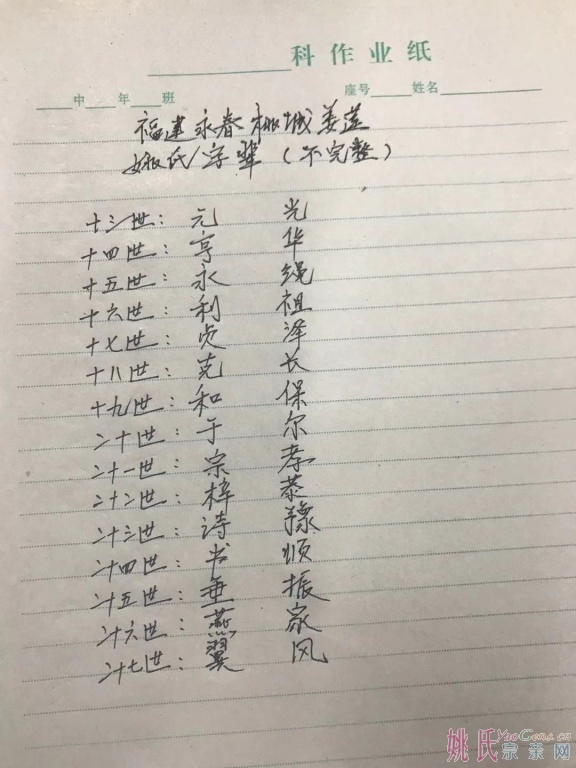 科作业纸
中 年 班 座号 姓名
福建永春桃城姜莲
姚氏字辈（不完整）
十三世：元 光
十四世：亨 华
十五世：永 绳
十六世：利 祖
十七世：贞 泽
十八世：克 长
十九世：和 保
二十世：于 尔
二十一世：宗 孝
二十二世：梓 恭
二十三世：诗
二十四世：书 顺
二十五世：垂 振
二十六世：燕 家
二十七世：翼 风
姚氏宗亲网